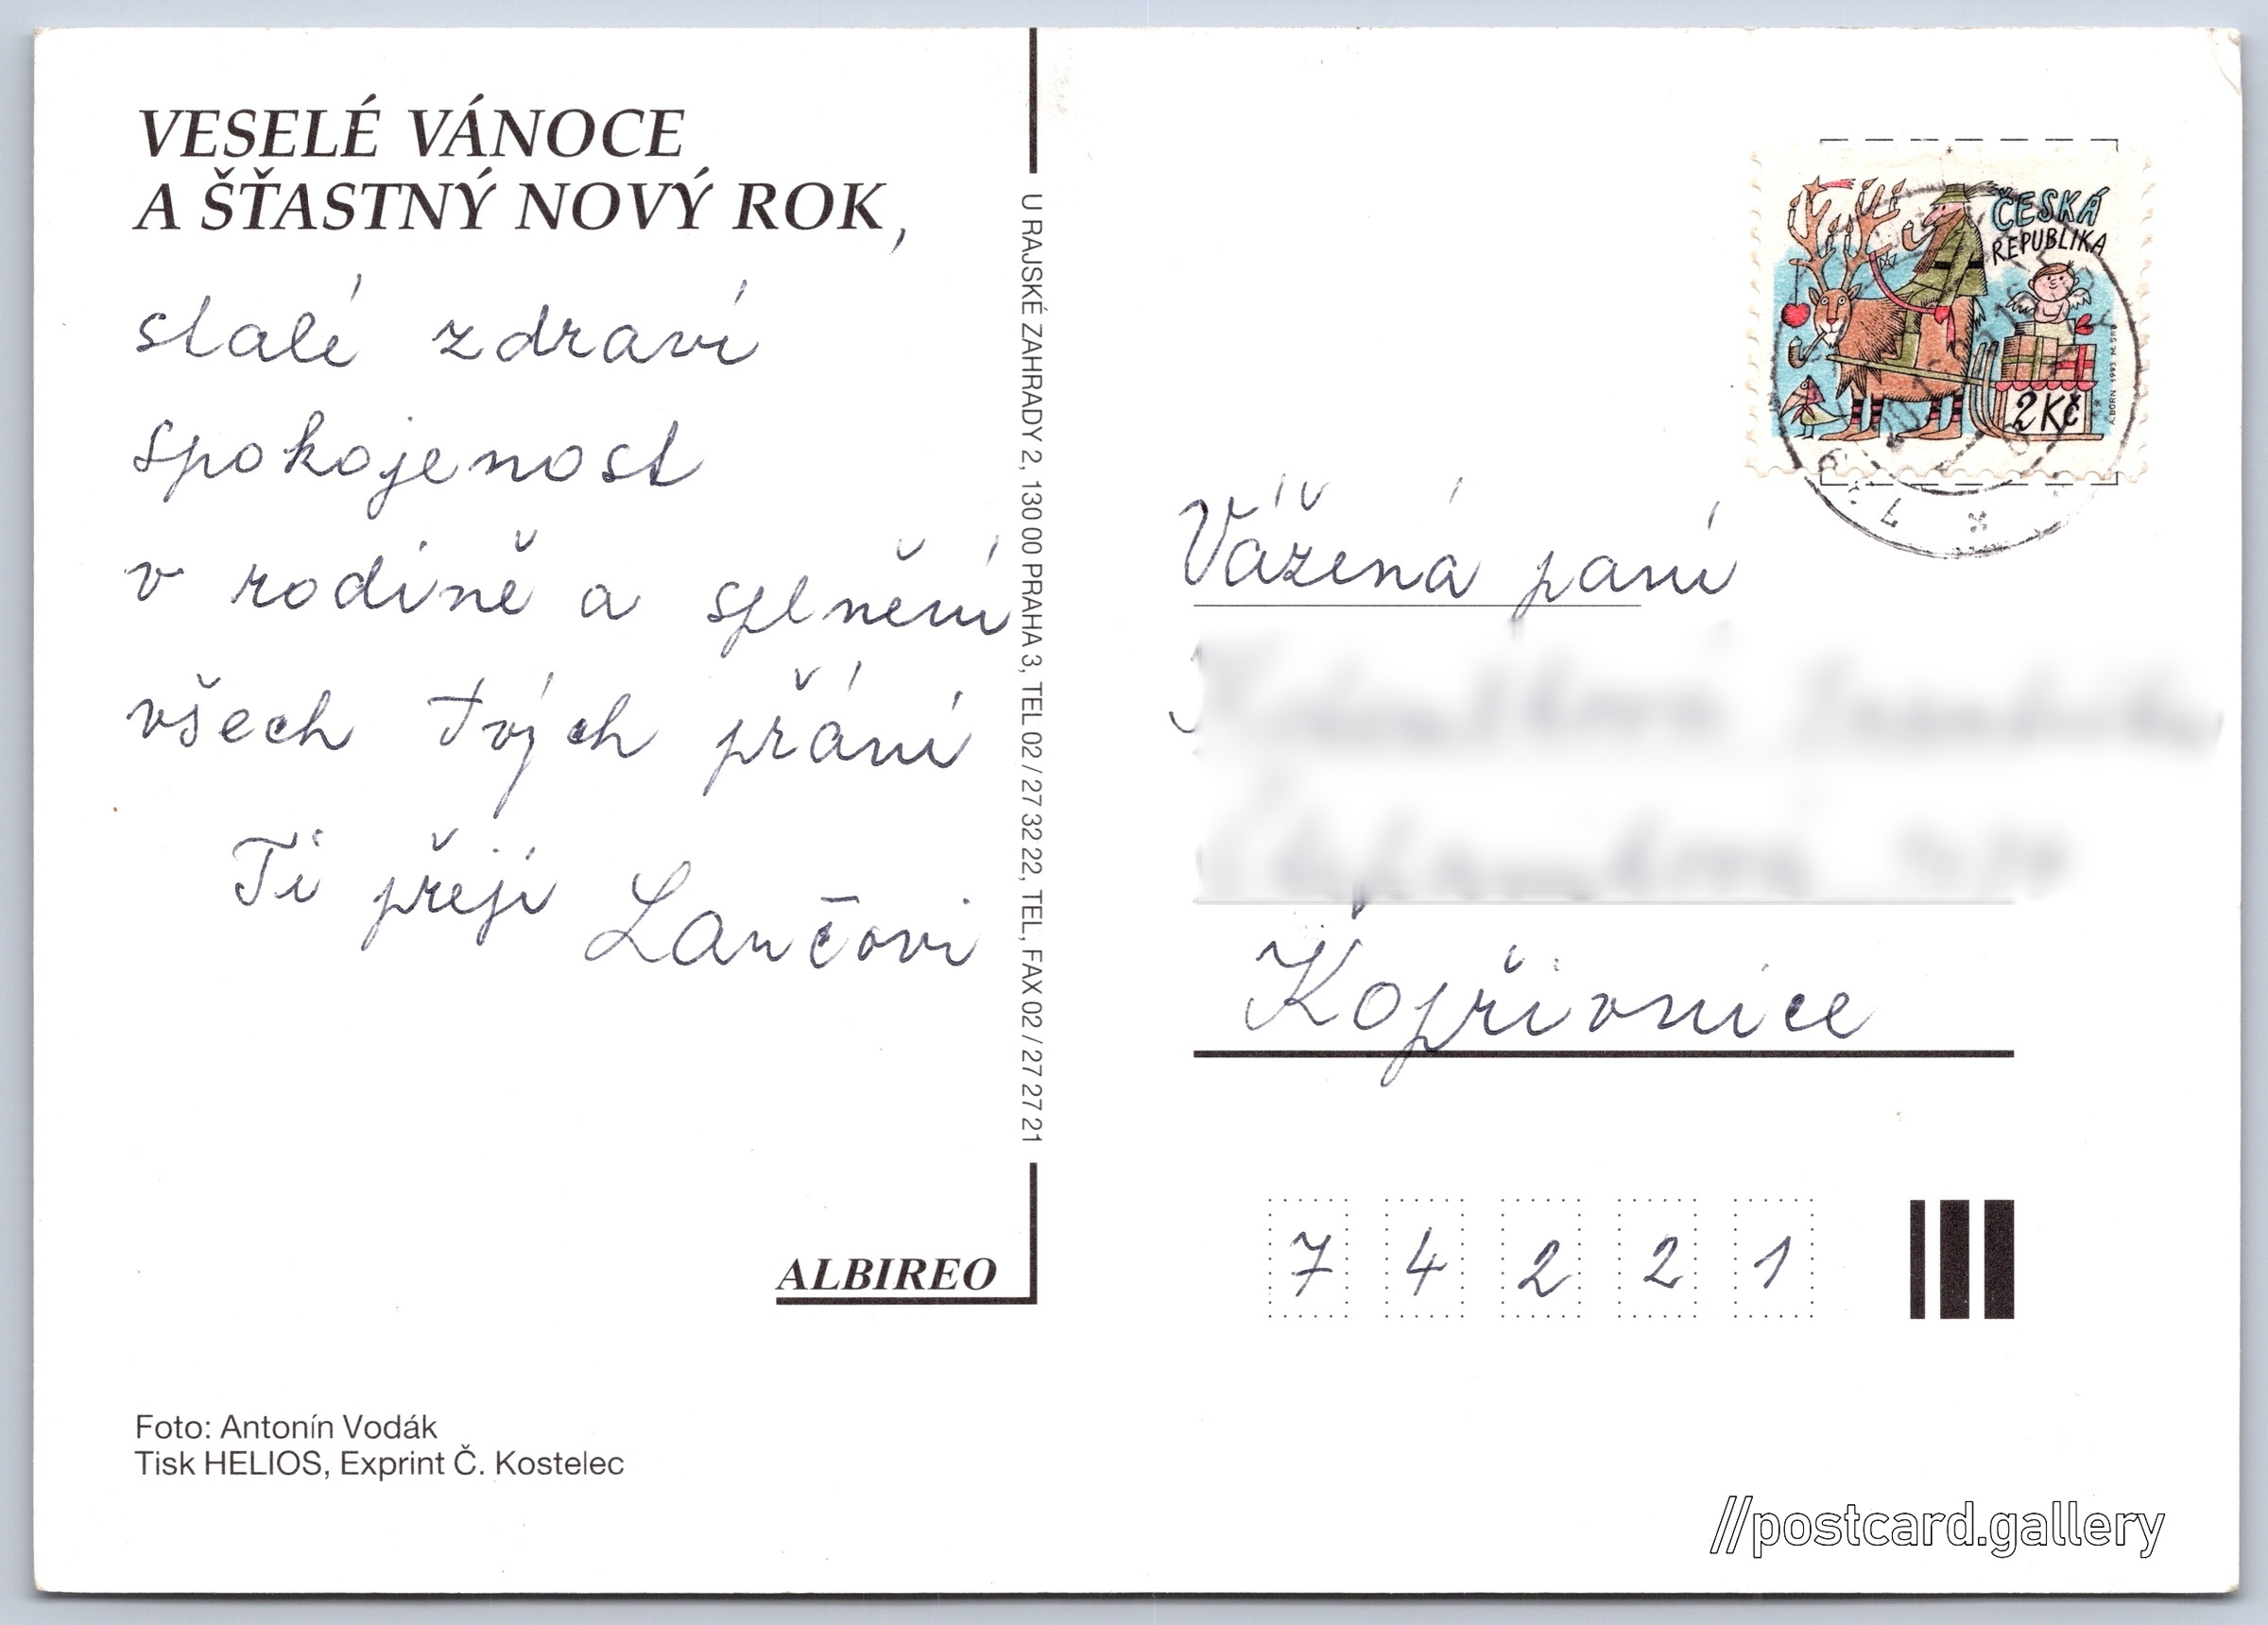 VESELÉ VÁNOCE
A ŠŤASTNÝ NOVÝ ROK,
stalé zdraví
spokojenost
v rodině a splnění
všech tvých přání
Ti přejí Lančovi
U RAJSKÉ ZAHRADY 2, 130 00 PRAHA 3, TEL 02 / 27 32 22, TEL, FAX 02 / 27 27 21
ALBIREO
Foto: Antonín Vodák
Tisk HELIOS, Exprint Č. Kostelec
ČESKÁ
REPUBLIKA
2 Kč
Vážená paní
Kopřivnice
7 4 2 2 1
//postcard.gallery